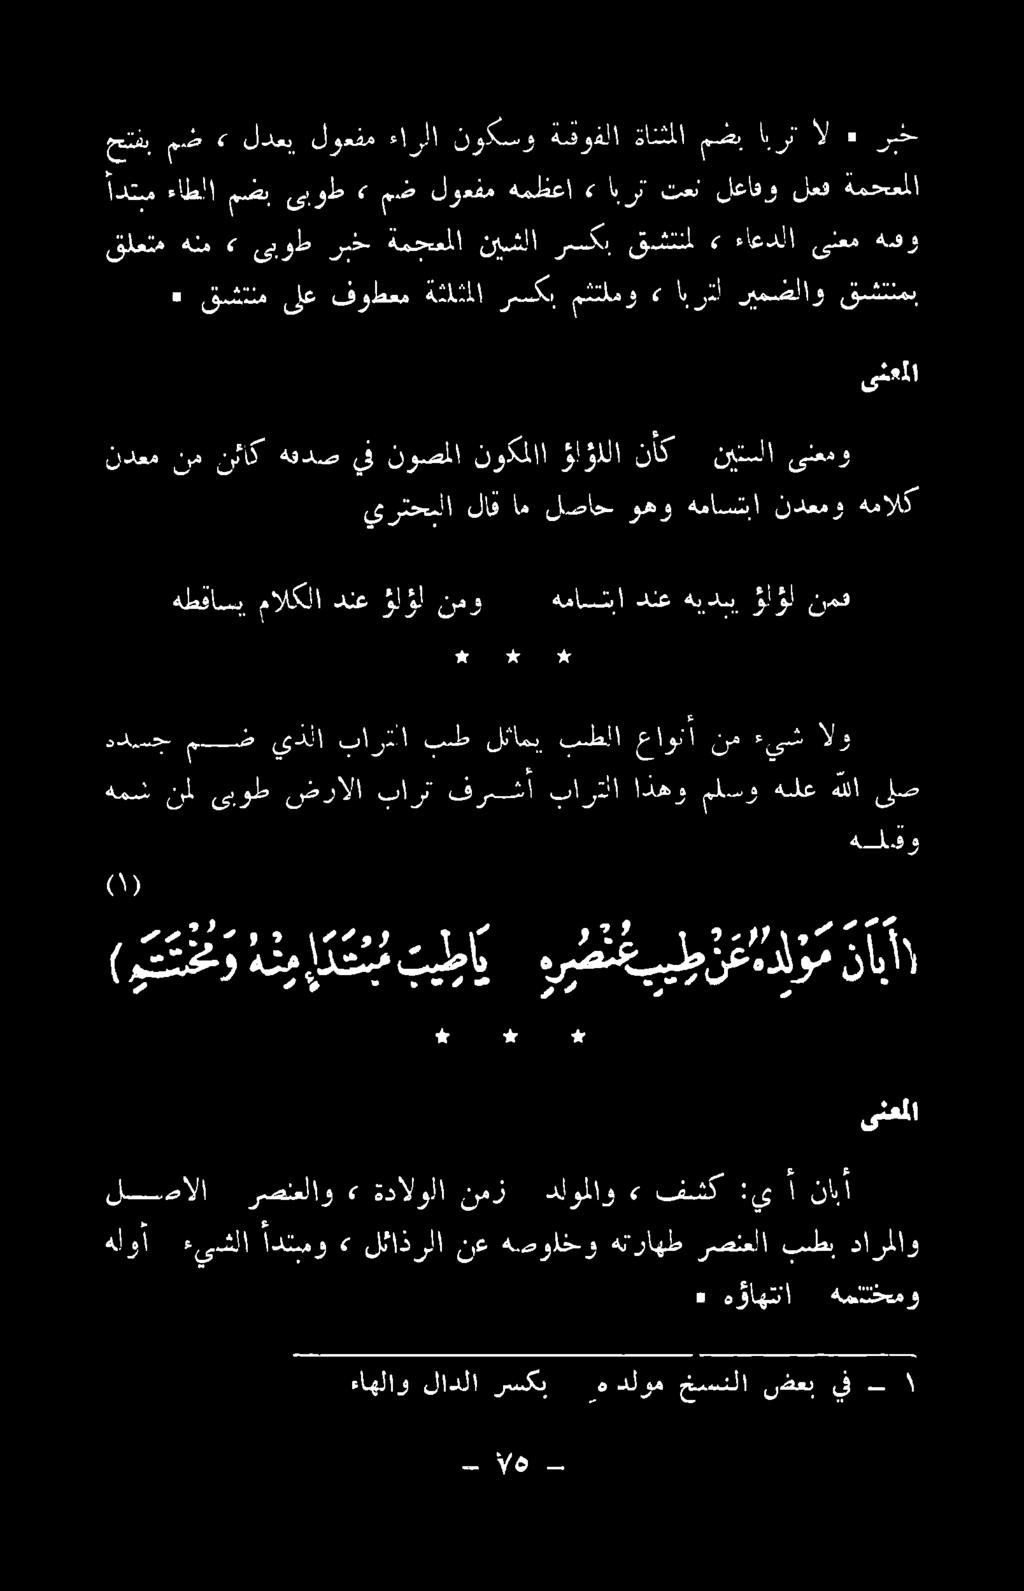 خبر ▪ لا تربا بضم المثناة الفوقية وسكون الراء مفعول يعدل ، ضم بفتح
المعحمة فعل وفاعل نعت تربا ، اعظمه مفعول ضم ، طوبى بضم الطاء مبتدأ
وفيه معنى الدعاء ، لمنتشق بكسر الشين المعجمة خبر طوبى ، منه متعلق
بمنتشق والضمير لتربا ، وملتثم بكسر المثلثة معطوف على منتشق ▪
المعنى
ومعنى الستين كأن اللؤلؤ االمكون المصون في صدفه كائن من معدن
كلامه ومعدن ابتسامه وهو حاصل ما قال البحتري
فمن لؤلؤ يبديه عند ابتسامه ومن لؤلؤ عند الكلام يساقطه
★ ★ ★
ولا شيء من أنواع الطيب يماثل طيب التراب الذي ضم جسده
صلى الله عليه وسلم وهذا التراب أشرف تراب الارض طوبى لمن شمه
وقبله
(١)
(أَبَانَ مَوْلِدُهُ عَنْ طِيبِ عُنْصُرِهِ يَاطِيبَ مُبْتَدَإٍ مِنْهُ وَمُخْتَتَمِ)
★ ★ ★
المعنى
أبان أ ي: كشف ، والمولد زمن الولادة ، والعنصر الاصل
والمراد بطيب العنصر طهارته وخلوصه عن الرذائل ، ومبتدأ الشيء أوله
ومختتمه انتهاؤه ▪
١ – في بعض النسخ مولد هِ بكسر الدال والهاء
– ٧٥ –